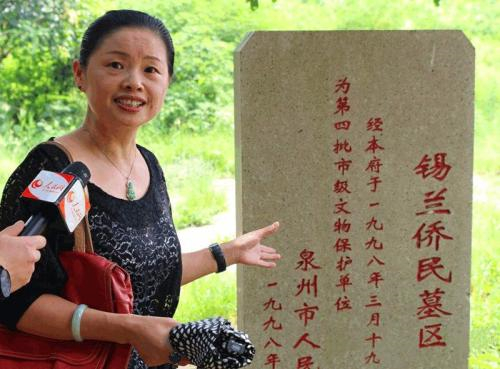 锡兰侨民墓区
经本府于一九九八年三月十九
为第四批市级文物保护单位
泉州市人民
一九九八年
人民网